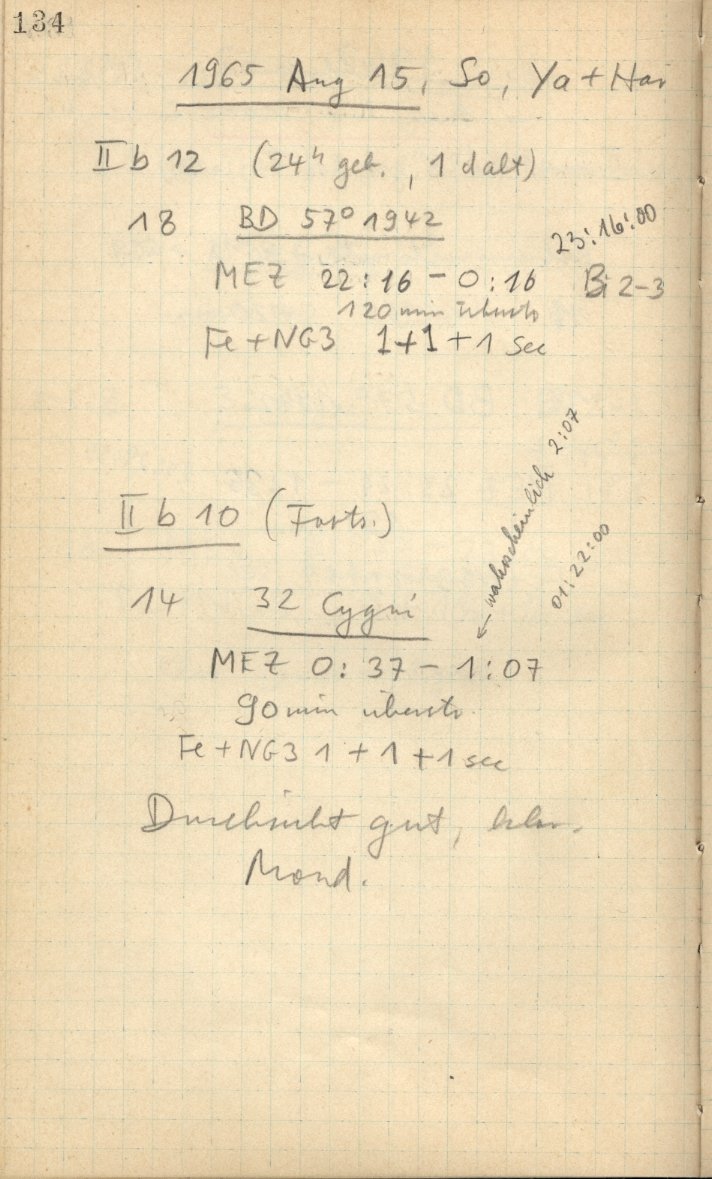 134
1965 Aug 15, So, Ya + Har
II b 12 (24h geb., 1 d alt)
18 BD 57° 1942
23:16:00
MEZ 22:16 - 0:16 Bi 2-3
120 min
Fe + NG3 1+1+1 sec
II b 10 (Forts.)
← wahrscheinlich 2:07
01:22:00
14 32 Cygni
MEZ 0:37 - 1:07
90 min überstr.
Fe + NG3 1 + 1 + 1 sec
Durchsicht gut,
Mond.